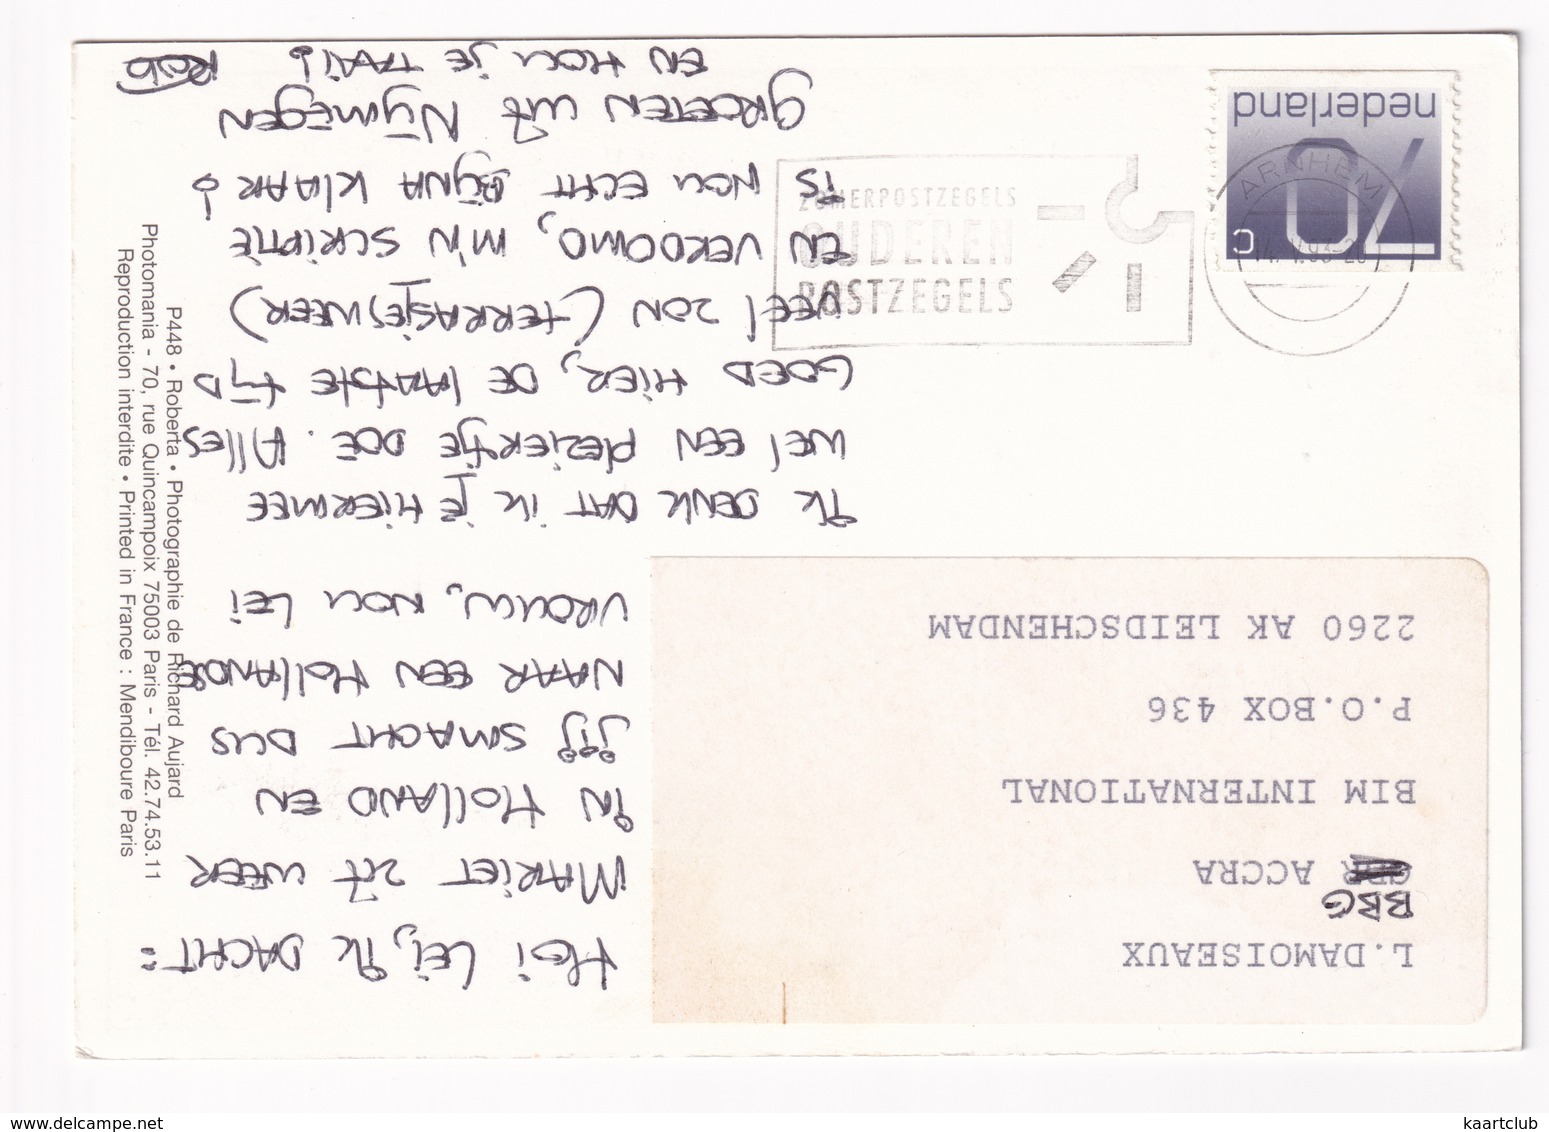 Hoi LEi, Ik DACHT:
MARiET zit WEER
iN HOllAND EN
jij SMACHT DUS
NAAR EEN HOllANDSE
VROUW, NOU LEi
Ik DENk DAT ik jE HiERMEE
WEl EEN plEZiERtjE DOE. AllES
GOED HiER, DE lAAtstE tijD
VEEl ZON (tERRASjESWEER)
EN VERDOMD, M'N SCRiPtiE
iS NOU ECHT BijNA KlAAR!
GROETEN uit NijmEGEN
EN HOU jE TAAi!
Rob
L.DAMOISEAUX
BBG
ACCRA
BIM INTERNATIONAL
P.O.BOX 436
2260 AK LEIDSCHENDAM
nederland
70
c
ARNHEM
ZOMERPOSTZEGELS
OUDEREN
POSTZEGELS
P448 • Roberta • Photographie de Richard Aujard
Photomania - 70, rue Quincampoix 75003 Paris - Tél. 42.74.53.11
Reproduction interdite • Printed in France : Mendiboure Paris
www.delcampe.net
kaartclub